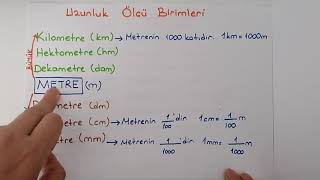 Uzunluk Ölçü Birimleri
Kilometre (km) → Metrenin 1000 katıdır. 1km=1000m
Hektometre (hm)
Dekametre (dam)
METRE (m)
metre (dm)
metre (cm) → Metrenin 1/100 'dir. 1cm = 1/100 m
metre (mm) → Metrenin 1/1000 'dir. 1mm = 1/1000 m